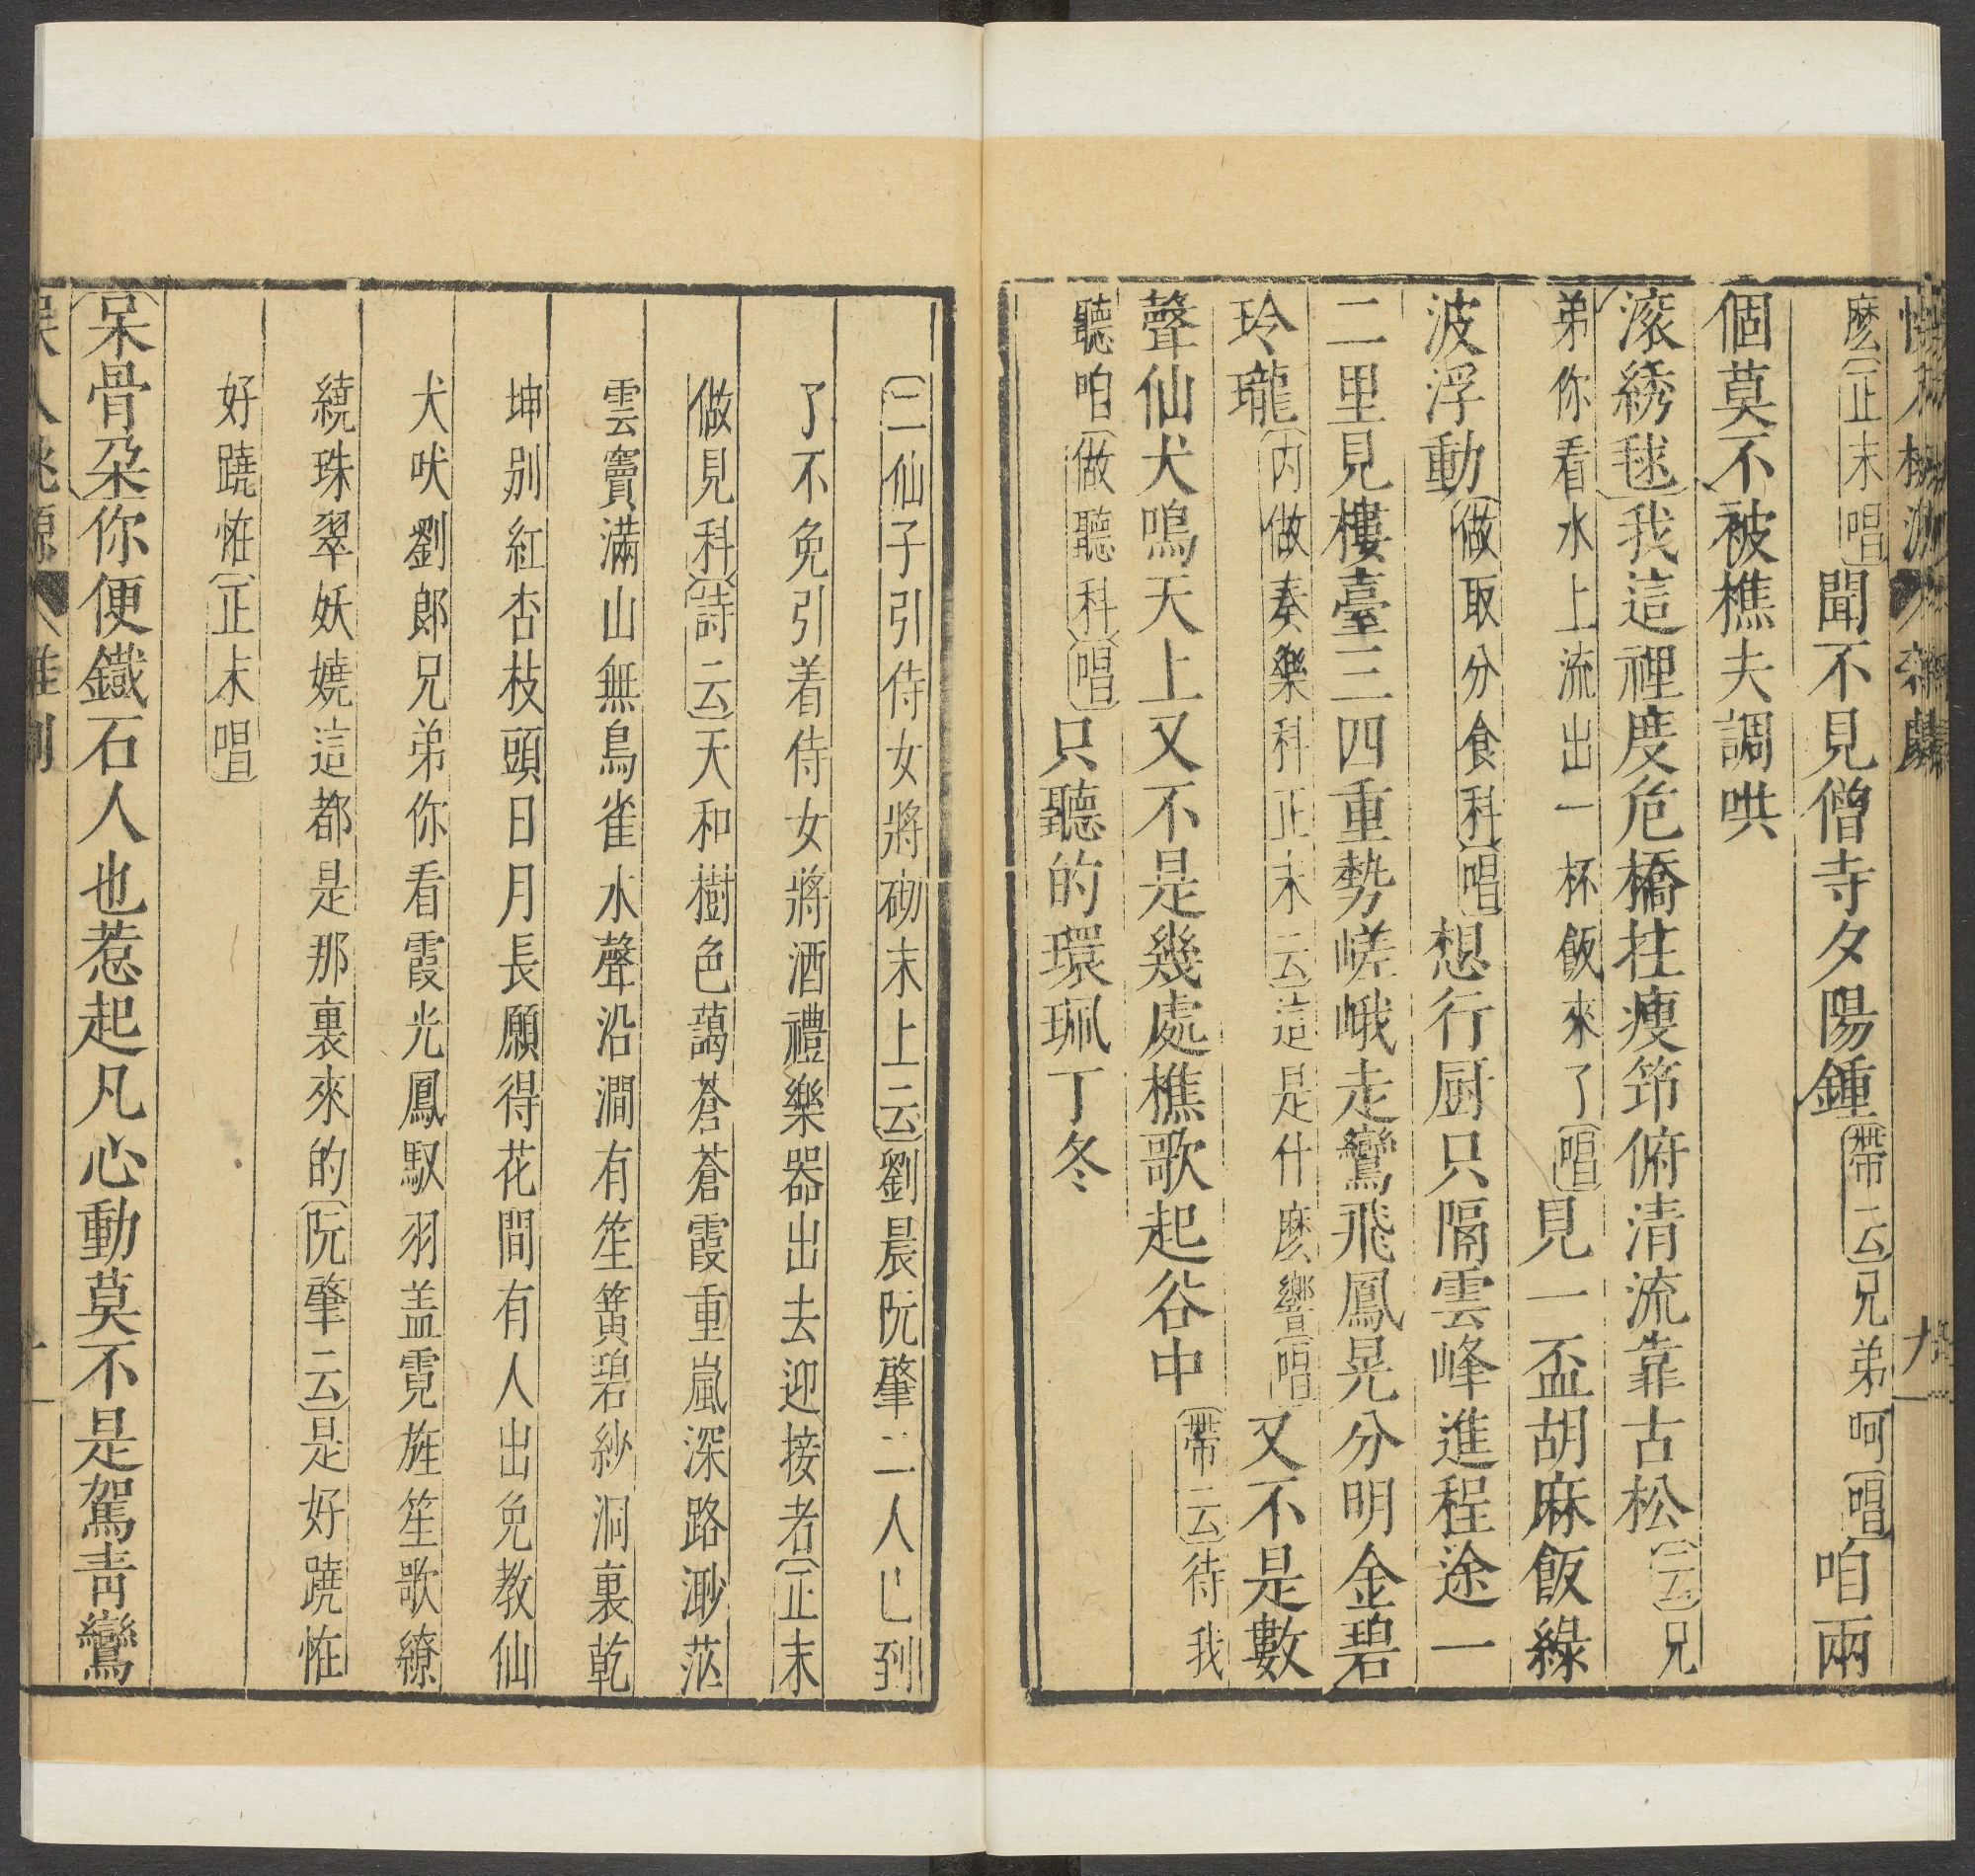 麽正末唱聞不見僧寺夕陽鍾帶云兄弟呵唱咱兩
個莫不被樵夫調哄
滚綉毬我這裡度危橋拄瘦筇俯清流靠古松云兄
弟你看水上流出一杯飯來了唱見一盃胡麻飯綠
波浮動做取分食科唱想行厨只隔雲峰進程途一
二里見樓臺三四重勢嵯峨走鸞飛鳳晃分明金碧
玲瓏内做奏樂科正末云這是什麽響唱又不是數
聲仙犬鳴天上又不是幾處樵歌起谷中帶云待我
聽咱做聽科唱只聽的環珮丁冬
二仙子引侍女將砌末上云劉晨阮肇二人已到
了不免引着侍女將酒禮樂器出去迎接者正末
做見科詩云天和樹色藹蒼蒼霞重嵐深路渺茫
雲竇滿山無鳥雀水聲沿澗有笙簧碧紗洞裏乾
坤别紅杏枝頭日月長願得花間有人出免教仙
犬吠劉郎兄弟你看霞光鳳馭羽盖霓旌笙歌繚
繞珠翠妖嬈這都是那裏來的阮肇云是好蹺恠
好蹺恠正末唱
呆骨朵你便鐵石人也惹起凡心動莫不是駕青鸞